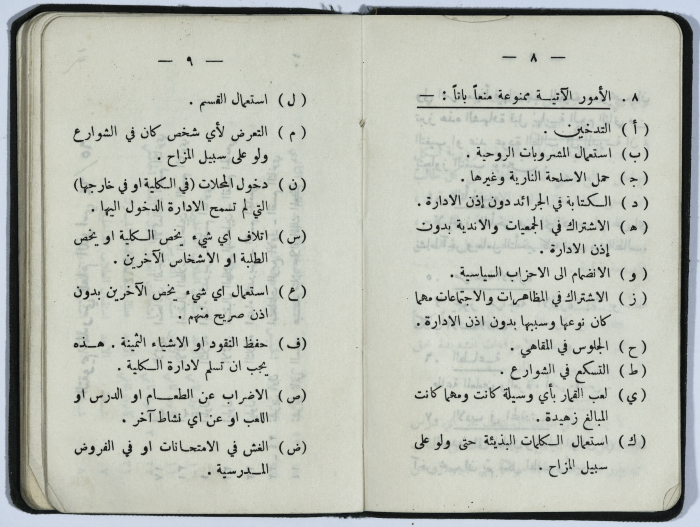 — ٨ —
٨ . الأمور الآتية ممنوعة منعاً باتاً : —
( أ ) التدخين .
(ب) استعمال المشروبات الروحية .
(ج) حمل الاسلحة النارية وغيرها .
( د ) الكتابة في الجرائد دون إذن الادارة .
(ه) الاشتراك في الجمعيات والاندية بدون
إذن الادارة .
( و ) الانضمام الى الاحزاب السياسية .
( ز ) الاشتراك في المظاهرات والاجتماعات مهما
كان نوعها وسببها بدون اذن الادارة .
(ح) الجلوس في المقاهي .
(ط) التسكع في الشوارع .
(ي) لعب القمار بأي وسيلة كانت ومهما كانت
المبالغ زهيدة .
(ك) استعمال الكلمات البذيئة حتى ولو على
سبيل المزاح .
— ٩ —
(ل) استعمال القسم .
(م) التعرض لأي شخص كان في الشوارع
ولو على سبيل المزاح .
(ن) دخول المحلات (في الكلية او في خارجها)
التي لم تسمح الادارة الدخول اليها .
(س) اتلاف اي شيء يخص الكلية او يخص
الطلبة او الاشخاص الآخرين .
(ع) استعمال اي شيء يخص الآخرين بدون
اذن صريح منهم .
(ف) حفظ النقود او الاشياء الثمينة . هذه
يجب ان تسلم لادارة الكلية .
(ص) الاضراب عن الطعام او الدرس او
اللعب او عن اي نشاط آخر .
(ض) الغش في الامتحانات او في الفروض
المدرسية .